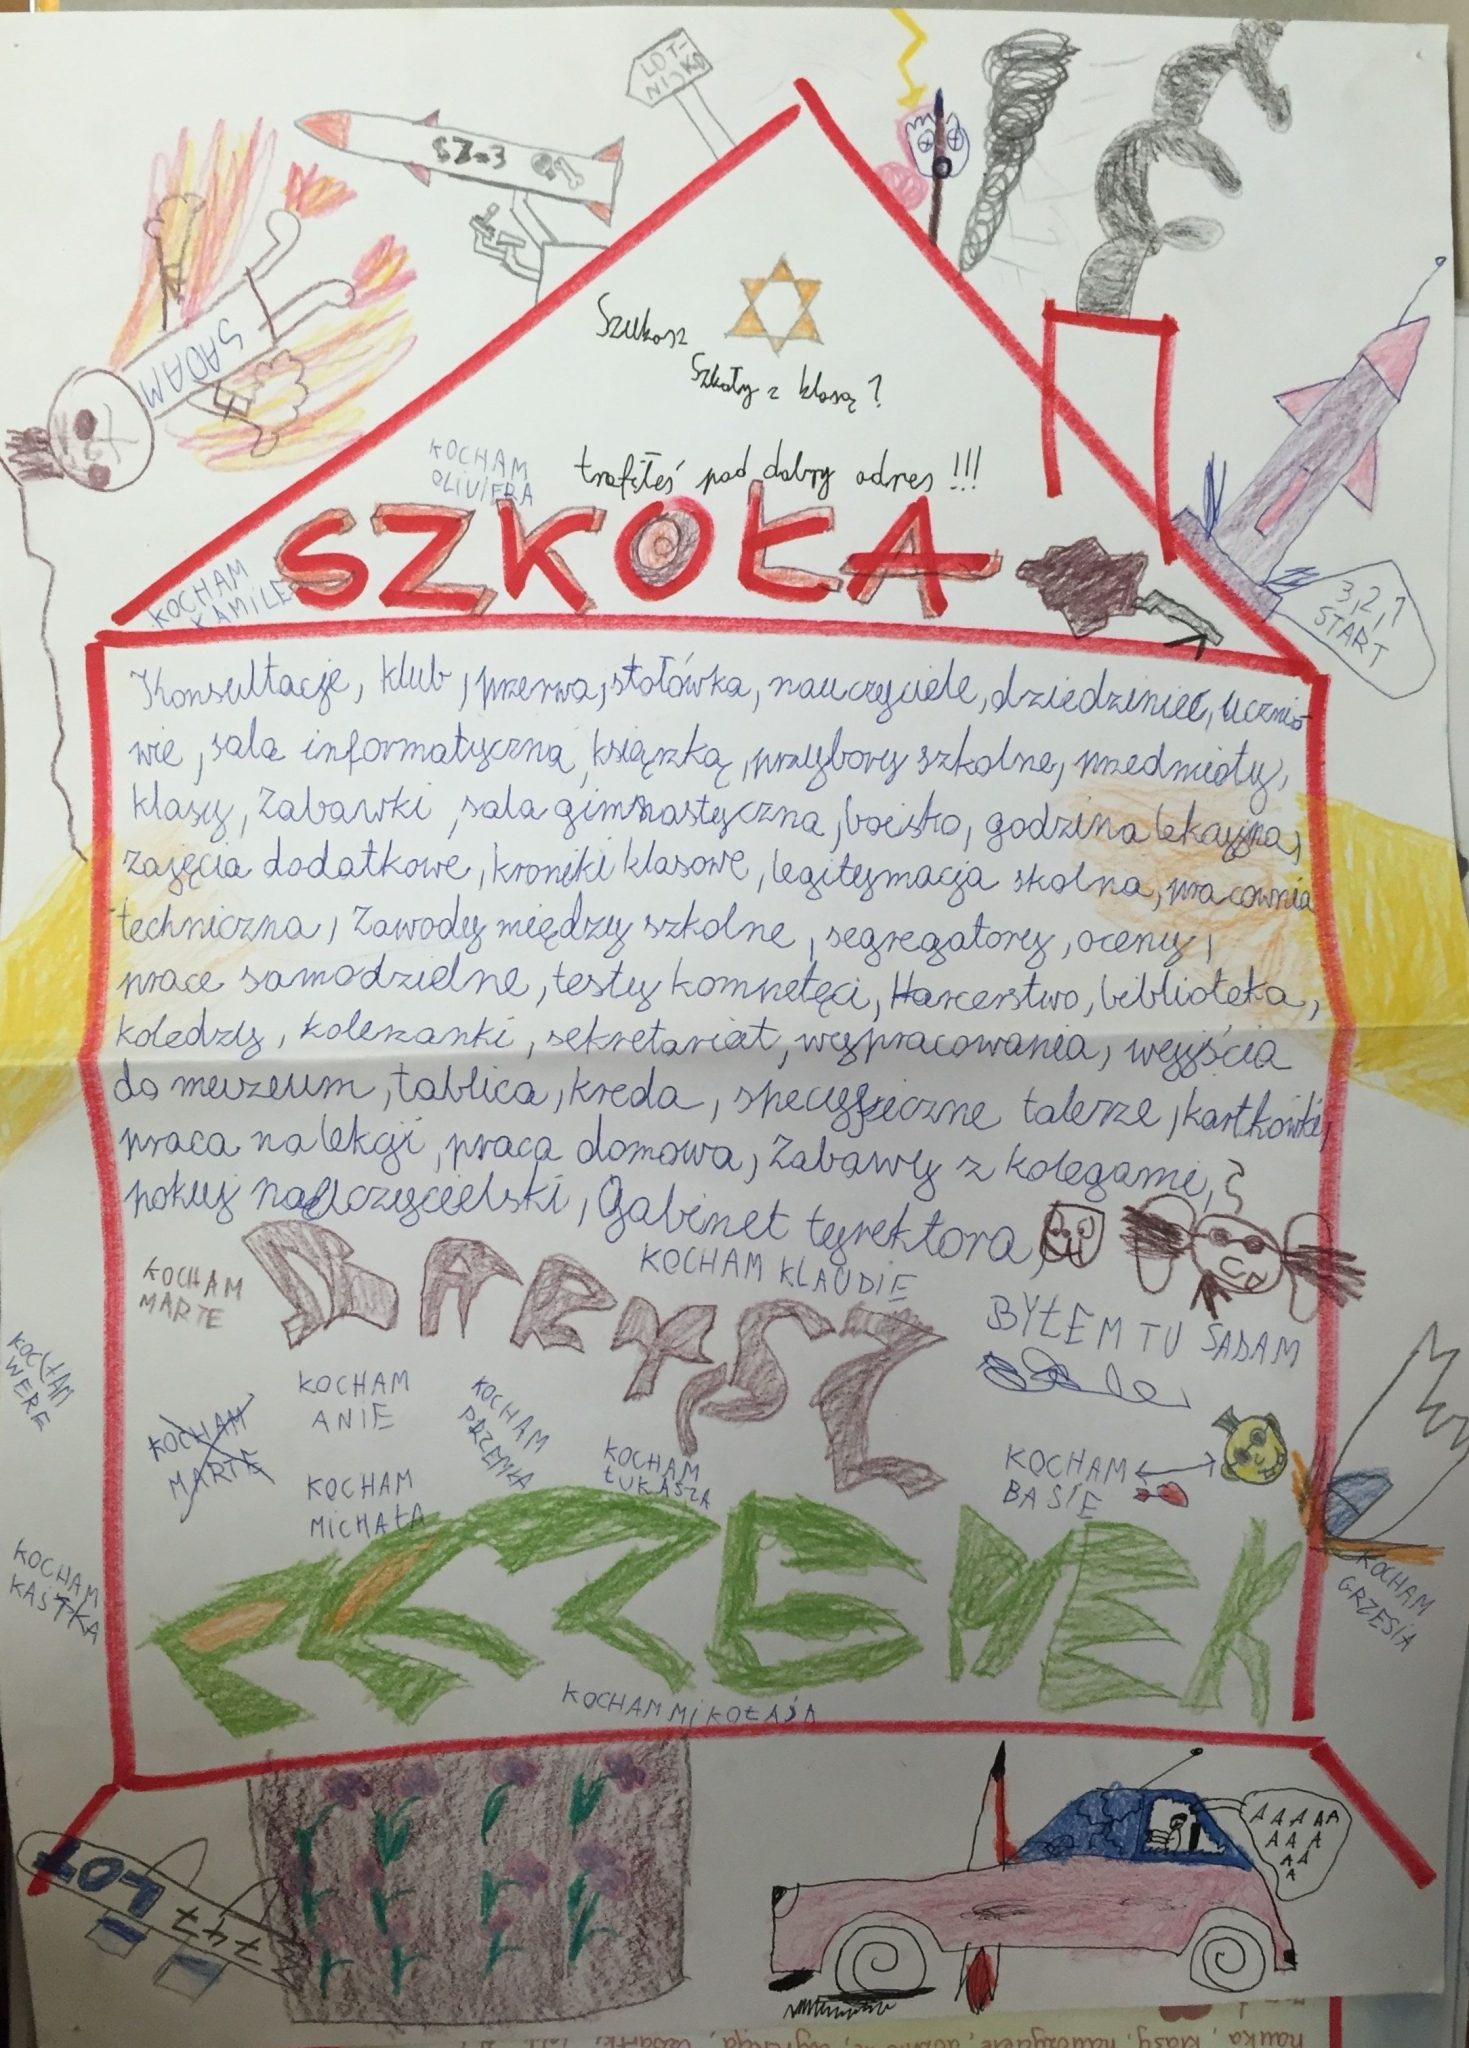 LOT-
NISKO
SZ=3
SADAM
Szukasz
Szkoły z klasą?
trafiłeś pod dobry adres!!!
KOCHAM
OLIWIERA
KOCHAM
KAMILE
SZKOŁA
3,2,1
START
Konsultacje, klub, przerwa, stołówka, nauczyciele, dziedziniec, ucznio
wie, sala informatyczną, książką, przybory szkolne, przedmioty,
klasy, zabawki, sala gimnastyczna, boisko, godzina lekcyjna,
zajęcia dodatkowe, kroniki klasowe, legitymacja skolna, pracownia
techniczna, zawody międzyszkolne, segregatory, oceny,
prace samodzielne, testy kompetęci, Harcerstwo, biblioteka,
koledzy, koleżanki, sekretariat, wypracowania, wyjścia
do meuzeum, tablica, kreda, specyficzne talerze, kartkówki,
praca na lekcji, praca domowa, Zabawy z kolegami,
pokuj nauczycielski, Gabinet tyrektora,
BARYSZ
KOCHAM KLAUDIE
KOCHAM
MARTE
BYŁEM TU SADAM
KOCHAM
WERE
KOCHAM
ANIE
KOCHAM
PRZEMKA
KOCHAM
MARTE
KOCHAM
MICHAŁA
KOCHAM
ŁUKASZA
KOCHAM
BASIE
KOCHAM
KAŚKA
KOCHAM
GRZESIA
KOCHAM MIKOŁAJA
LOT
747
AAAAA
AAA
AA
A